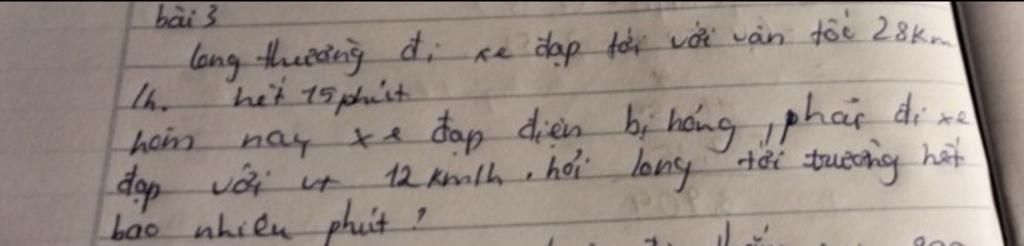 bài 3
long thường đi xe đạp tới với vận tốc 28km
/h. hết 15 phút
hôm nay xe đạp điện bị hỏng, phải đi xe
đạp với vt 12 km/h. hỏi long tới trường hết
bao nhiêu phút?